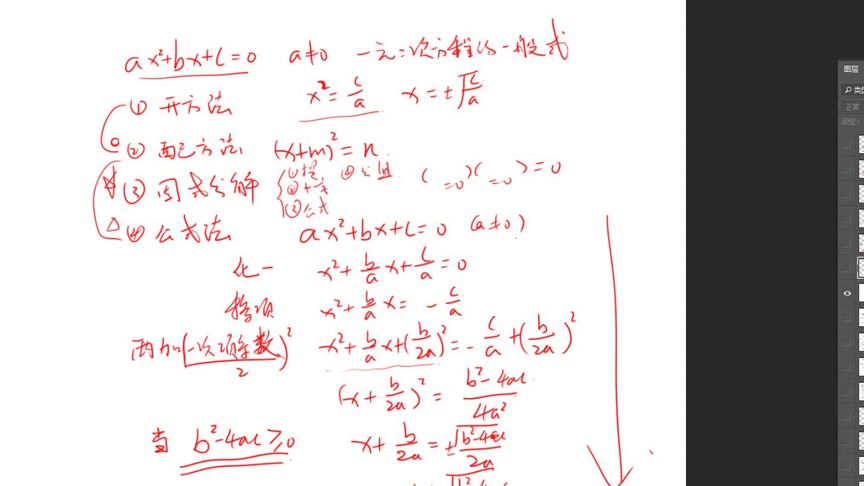 ax²+bx+c=0 a≠0 一元二次方程的一般式
① 开方法 x²=c/a x=±√(c/a)
② 配方法 (x+m)²=n
③ 因式分解 ①提 ②十字 ③公式 ④分组 ( =0)( =0)=0
④ 公式法 ax²+bx+c=0 (a≠0)
化一 x²+b/a x+c/a=0
移项 x²+b/a x=-c/a
两加(一次项系数/2)² x²+b/a x+(b/2a)²=-c/a+(b/2a)²
(x+b/2a)²=(b²-4ac)/4a²
当 b²-4ac≥0 x+b/2a=±√(b²-4ac)/2a
图层
正常